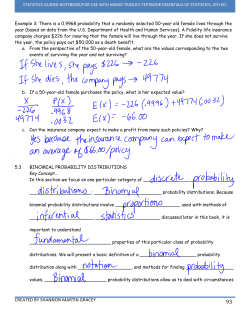 STATISTICS GUIDED NOTEBOOK/FOR USE WITH MARIO TRIOLA'S TEXTBOOK ESSENTIALS OF STATISTICS, 4TH ED.
Example 3. There is a 0.9968 probability that a randomly selected 50-year old female lives through the
year (based on data from the U.S. Department of Health and Human Services). A Fidelity life insurance
company charges $226 for insuring that the female will live through the year. If she does not survive
the year, the policy pays out $50,000 as a death benefit.
a. From the perspective of the 50-year-old female, what are the values corresponding to the two
events of surviving the year and not surviving?
If she lives, she pays $226 → -226
If she dies, the company pays → 49774
b. If a 50-year-old female purchases the policy, what is her expected value?
x P(x)
-226 .9968
49774 .0032
E(x) = -226(.9996)+49774(.0032)
E(x) = -66.00
c. Can the insurance company expect to make a profit from many such policies? Why?
Yes because the insurance company can expect to make
an average of $66.00/policy
5.3 BINOMIAL PROBABILITY DISTRIBUTIONS
Key Concept...
In this section we focus on one particular category of discrete probability
distributions: Binomial probability distributions. Because
binomial probability distributions involve proportions used with methods of
inferential statistics discussed later in this book, it is
important to understand
fundamental properties of this particular class of probability
distributions. We will present a basic definition of a binomial probability
distribution along with notation and methods for finding probability
values. Binomial probability distributions allow us to deal with circumstances
CREATED BY SHANNON MARTIN GRACEY
93